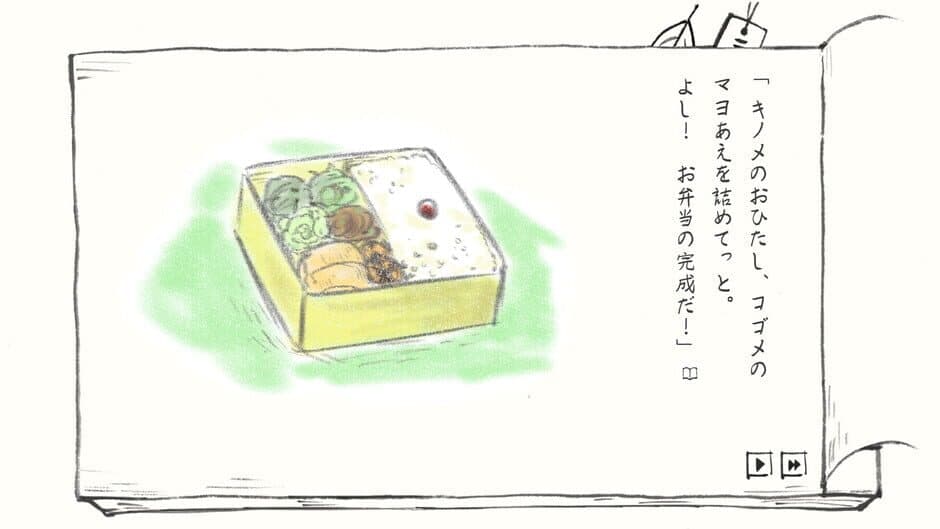 「キノメのおひたし、コゴメの
マヨあえを詰めてっと。
よし！　お弁当の完成だ！」